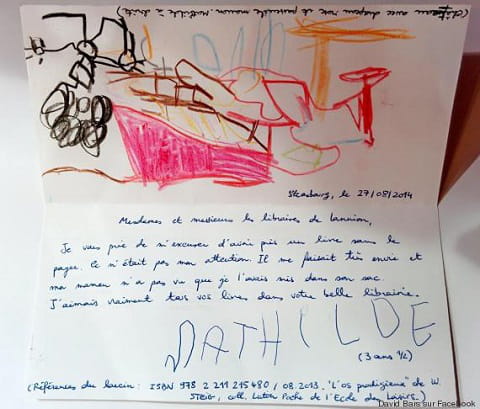 Strasbourg, le 27/08/2014
Mesdames et messieurs les libraires de Lannion,
Je vous prie de m'excuser d'avoir pris un livre sans le
payer. Ce n'était pas mon attention. Il me faisait très envie et
ma maman n'a pas vu que je l'avais mis dans son sac.
J'aimais vraiment tous vos livres dans votre belle librairie.
MATHILDE
(3 ans ½)
(Références du larcin : ISBN 978 2 211 215480 / 08.2013. "L'os prodigieux" de W.
STEIG, coll. Lutin Poche de l'Ecole des Loisirs.)
David Bars sur Facebook